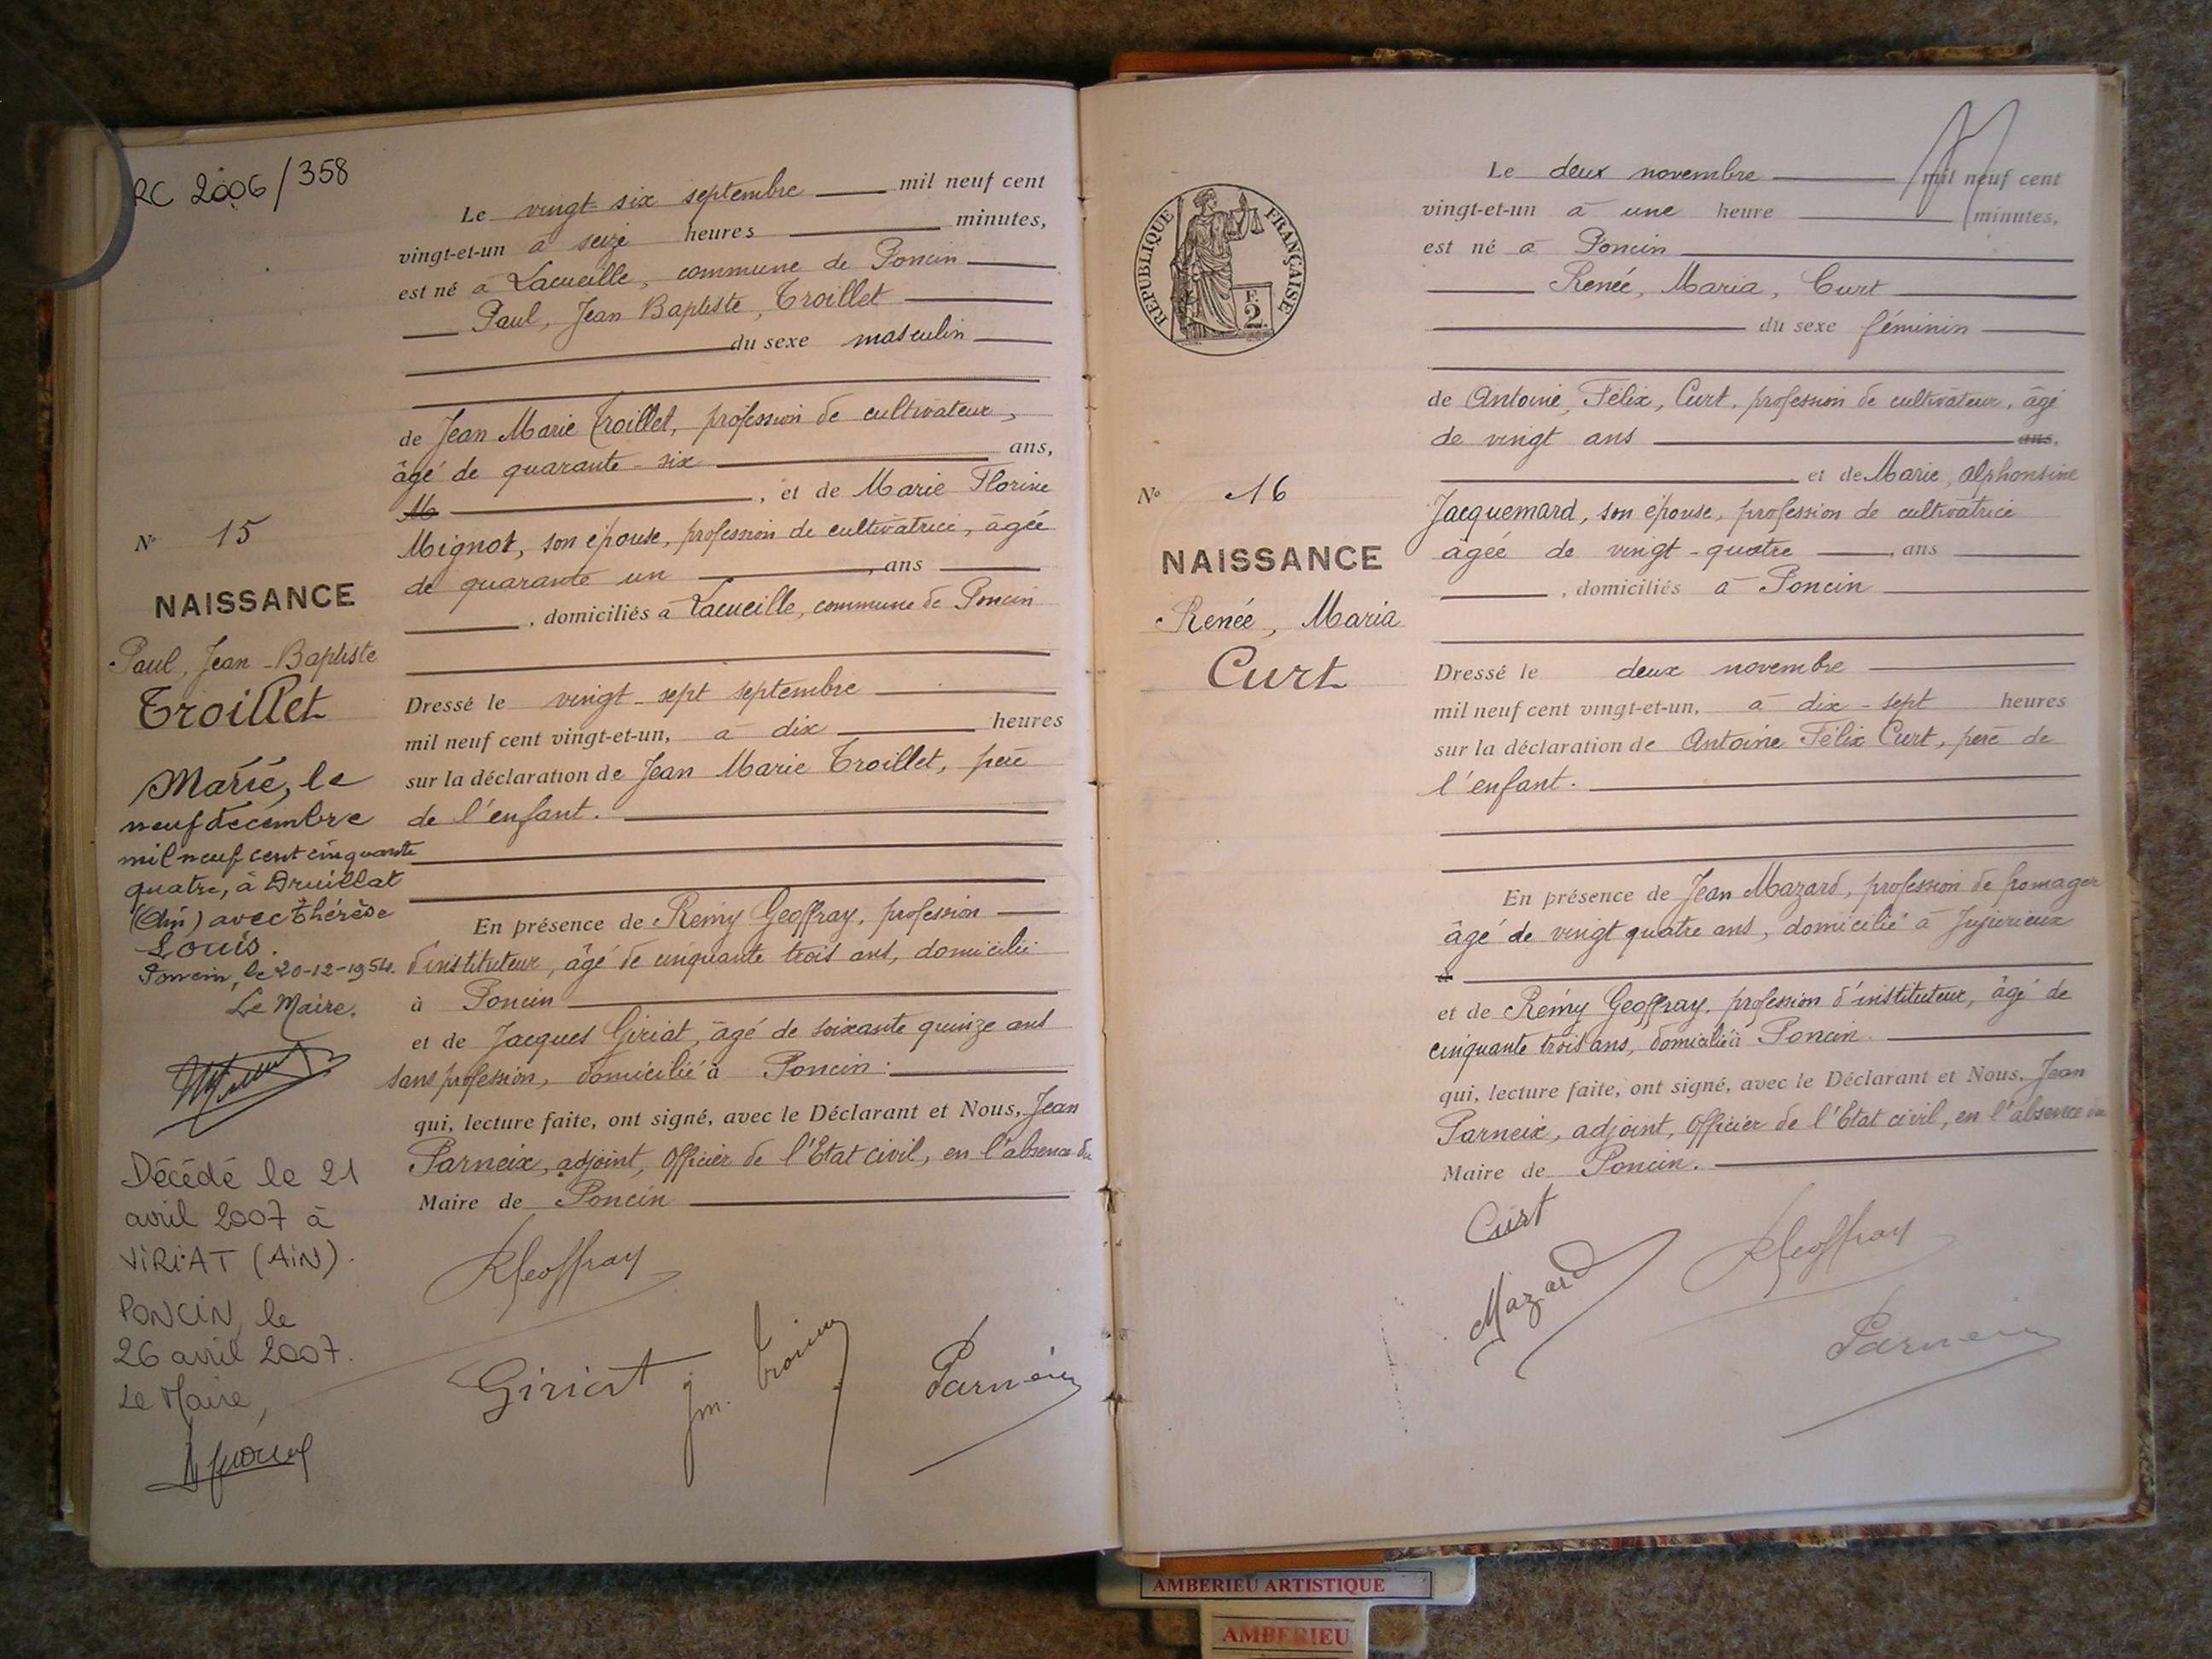 RC 2006/358
Le vingt-six septembre mil neuf cent
vingt-et-un à seize heures minutes,
est né à Lacueille, commune de Poncin
Paul, Jean Baptiste, Troillet
du sexe masculin
de Jean Marie Troillet, profession de cultivateur,
âgé de quarante-six ans,
M , et de Marie Florine
Mignot, son épouse, profession de cultivatrice, âgée
de quarante un , ans
, domiciliés à Lacueille, commune de Poncin
Dressé le vingt-sept septembre
mil neuf cent vingt-et-un, à dix heures
sur la déclaration de Jean Marie Troillet, père
de l'enfant.
En présence de Rémy Geoffray, profession
d'instituteur, âgé de cinquante trois ans, domicilié
à Poncin
et de Jacques Giriat, âgé de soixante quinze ans
sans profession, domicilié à Poncin.
qui, lecture faite, ont signé, avec le Déclarant et Nous, Jean
Parneix, adjoint, Officier de l'Etat civil, en l'absence du
Maire de Poncin
RGeoffray
Giriat
Jm.
Parneix
N° 15
NAISSANCE
Paul, Jean-Baptiste
Troillet
Marié, le
neuf décembre
mil neuf cent cinquante
quatre, à Druillat
(Ain) avec Thérèse
Louis.
Poncin, le 20-12-1954.
Le Maire.
Décédé le 21
avril 2007 à
VIRIAT (AIN).
PONCIN, le
26 avril 2007.
Le Maire,
RÉPUBLIQUE FRANÇAISE
F.
2
N° 16
NAISSANCE
Renée, Maria
Curt
Le deux novembre mil neuf cent
vingt-et-un à une heure minutes,
est né à Poncin
Renée, Maria, Curt
du sexe féminin
de Antoine, Félix, Curt, profession de cultivateur, âgé
de vingt ans ans,
et de Marie, Alphonsine
Jacquemard, son épouse, profession de cultivatrice
âgée de vingt-quatre , ans
, domiciliés à Poncin
Dressé le deux novembre
mil neuf cent vingt-et-un, à dix-sept heures
sur la déclaration de Antoine Félix Curt, père de
l'enfant.
En présence de Jean Mazard, profession de fromager
âgé de vingt quatre ans, domicilié à Jujurieux
et de Rémy Geoffray, profession d'instituteur, âgé de
cinquante trois ans, domicilié à Poncin.
qui, lecture faite, ont signé, avec le Déclarant et Nous, Jean
Parneix, adjoint, Officier de l'Etat civil, en l'absence du
Maire de Poncin.
Curt
Mazard
RGeoffray
Parneix
AMBERIEU ARTISTIQUE
AMBERIEU